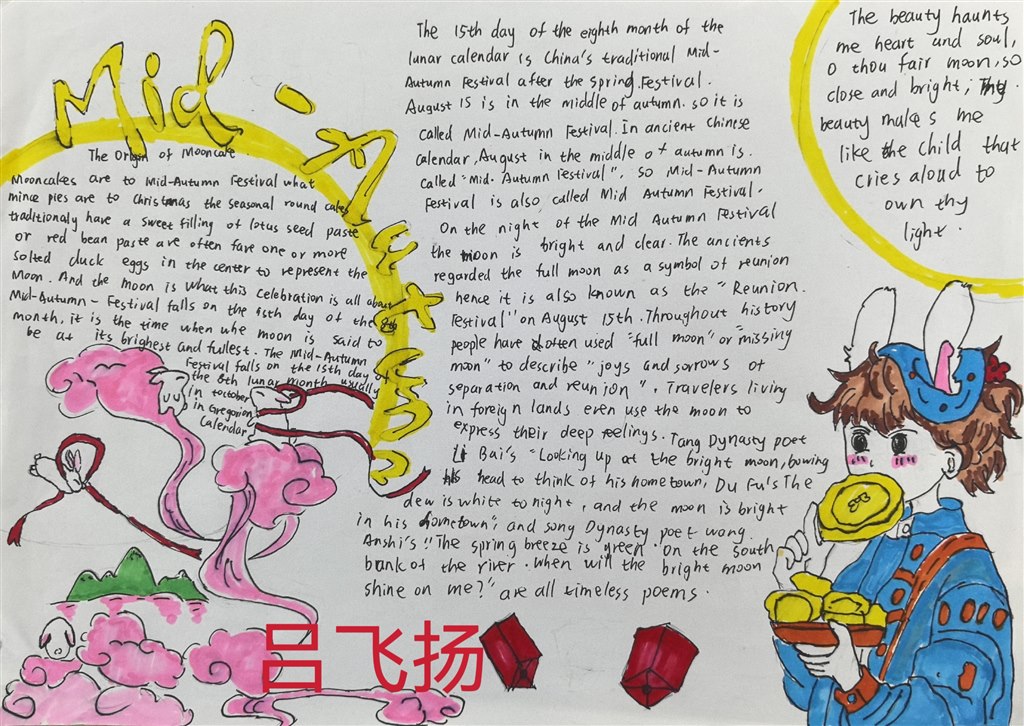 Mid-Autumn
The Origin of Mooncake.
Mooncakes are to Mid-Autumn Festival what
mince pies are to Christmas the seasonal round cakes
traditionaly have a sweet filling of lotus seed paste
or red bean paste are often fare one or more
solted duck eggs in the center to represent the
Moon. And the moon is what this celebration is all about
Mid-Autumn-Festival falls on the 15th day of the 8th
month, it is the time when whe moon is said to
be at its brighest and fullest. The Mid-Autumn
Festival falls on the 15th day of
the 8th lunar month usually
in october
in Gregorian
Calendar
The 15th day of the eighth month of the
lunar calendar is China's traditional Mid-
Autumn Festival after the spring Festival.
August 15 is in the middle of autumn. so it is
called Mid-Autumn Festival. In ancient Chinese
calendar, August in the middle of autumn is.
called "Mid. Autumn Festival", so Mid-Autumn
Festival is also called Mid Autumn Festival.
On the night of the Mid Autumn Festival
the moon is bright and clear. The ancients
regarded the full moon as a symbol of reunion
hence it is also known as the "Reunion.
Festival" on August 15th. Throughout history
people have often used "full moon" or "missing
moon" to describe "joys and sorrows of
separation and reunion". Travelers living
in foreign lands even use the moon to
express their deep feelings. Tang Dynasty poet
Li Bai's "Looking up at the bright moon, bowing
his head to think of his hometown, Du Fu's The
dew is white to night, and the moon is bright
in his hometown", and song Dynasty poet wang.
Anshi's "The spring breeze is green. on the south
bank of the river. when will the bright moon
shine on me?" are all timeless poems.
The beauty haunts
me heart and soul,
O thou fair moon, so
close and bright; Thy
beauty makes me
like the child that
cries aloud to
own thy
light.
吕飞扬